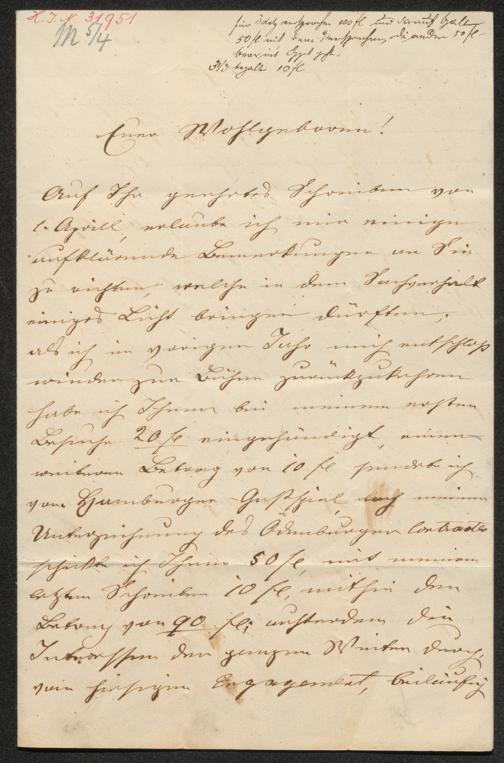 H. I. N. 31951
M 5/4
für Datz versprochen 100 fl und darauf bezalt
50 fl mit dem Versprechen, die andern 50 fl
bezalt 10 fl
Euer Wohlgeboren!
Auf Ihr geehrtes Schreiben von
1. Aprill, erlaube ich mir einige
aufklärende Bemerkungen an Sie
zu richten, welche in dem Sachverhalt
einiges Licht bringen dürften,
als ich im vorigen Jahr mich entschloß
wieder zur Bühne zurückzukehren
habe ich Ihnen bei meinem ersten
Besuche 20 fl eingehändigt, einen
weiteren Betrag von 10 fl sendete ich
vom Hamburger Gastspiel, nach meiner
Unterzeichnung des Ödenburger Contractes
schickte ich Ihnen 50 fl, mit meinem
letzten Schreiben 10 fl, mithin den
Betrag von 90 fl; außerdem die
Interessen den ganzen Winter durch
vom hiesigen Engagement, beiläufig